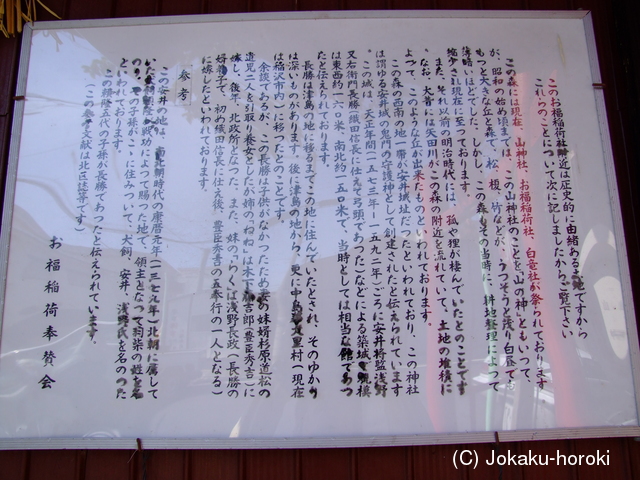 このお福稲荷社附近は正史的に由緒ある土地ですから
これらのことについて次に記しましたからご覧下さい
この森には現在、山神社、お福稲荷社、白竜社が祭られております
が、昭和の始め頃までは、この山神社のことを「山の神」ともいって、
もっと大きな丘と森で、松、榎、竹などが、うっそうと茂り白昼でも
薄暗いほどでした。しかし、この森もその当時に、耕地整理によって
縮少され現在に至っております。
また、それ以前の明治時代には、狐や狸が棲んでいたとのことです
なお、大昔には矢田川がこの森の附近を流れていて、土地の堆積に
よって、このような丘が出来たものといわれております。
この森の西南の地一帯が安井城址だったといわれており、この神社
は謂ゆる安井城の鬼門の守護神として創建されたと伝えられています
この城は、天正年間(一五七三年ー一五九二年)ごろに安井将監浅野
又右衛門長勝(織田信長に仕えて弓頭であった)などによる築城で規模
は東西約一六〇米、南北約一五〇米で、当時としては相当な館であっ
たと伝えられております。
長勝は津島の地に移るまでこの地に住んでいたとされ、そのゆかり
は深いものがあります。後に津島の地から、更に中島郡 里村(現在
は稲沢市内)に移ったとのことです。
余談であるが、この長勝は子供がなかったため妻の妹婿杉原道松の
遺児二人を引取り養女としたが姉の「ねね」は木下藤吉郎(豊臣秀吉)に
嫁し、後年、北政所となった。また、妹の「らく」は浅野長政(長勝の
好養子で、初め織田信長に仕え後、豊臣秀吉の五奉行の一人となる)
に嫁したといわれております。
参考
この安井の地は、南北朝時代の康暦元年(一三七九年)北朝に属して
いた 朝頼 が戦功によって賜った地で、領主となって 柴の姓を名
のり、その子孫がこゝに住みついて、犬飼、安井、浅野氏を名のった
といわれております。
この頼隆五代の子孫が長勝であったと伝えられています。
(この参考文献は北区誌等です)
お福稲荷奉賛会
(C) Jokaku-horoki